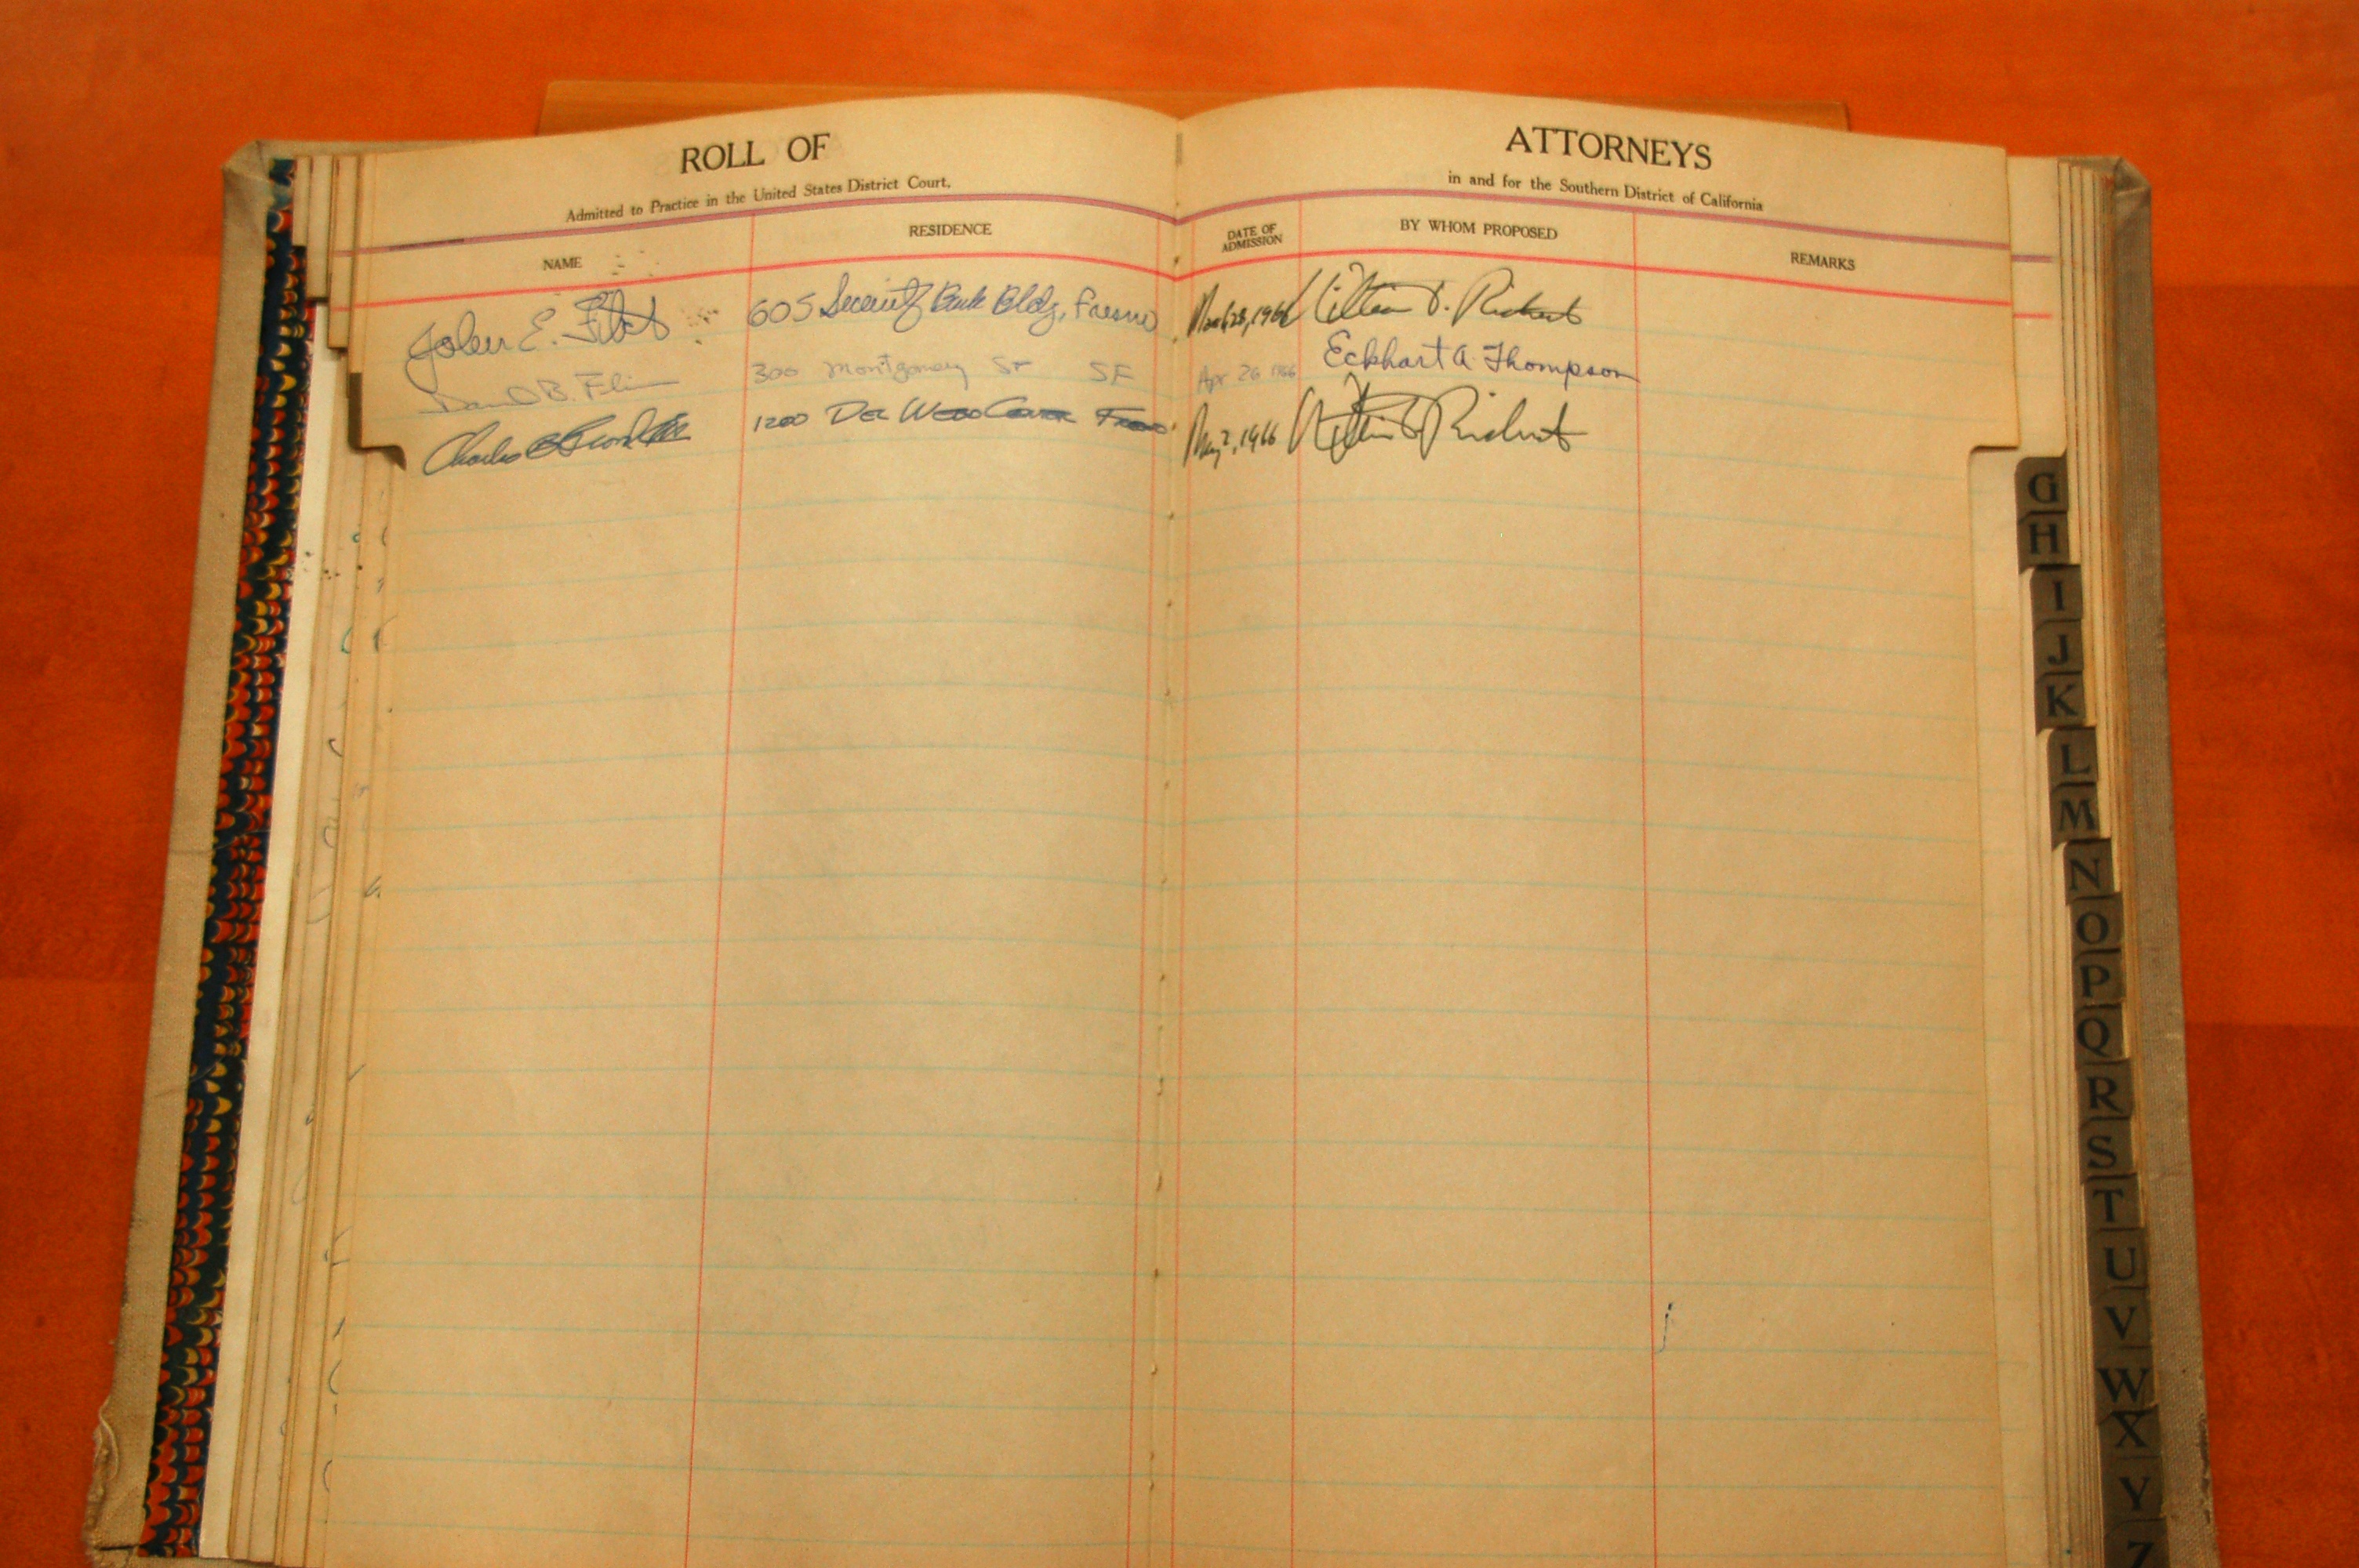 ROLL OF ATTORNEYS
Admitted to Practice in the United States District Court, in and for the Southern District of California
NAME RESIDENCE DATE OF ADMISSION BY WHOM PROPOSED REMARKS
John E. 605 Security Bank Bldg, Fresno March 28, 1966 William
300 Montgomery St SF Apr 26 1966 Eckhart A. Thompson
Charles 1200 Del Webb Center Fresno May 2, 1966
G
H
I
J
K
L
M
N
O
P
Q
R
S
T
U
V
W
X
Y
Z